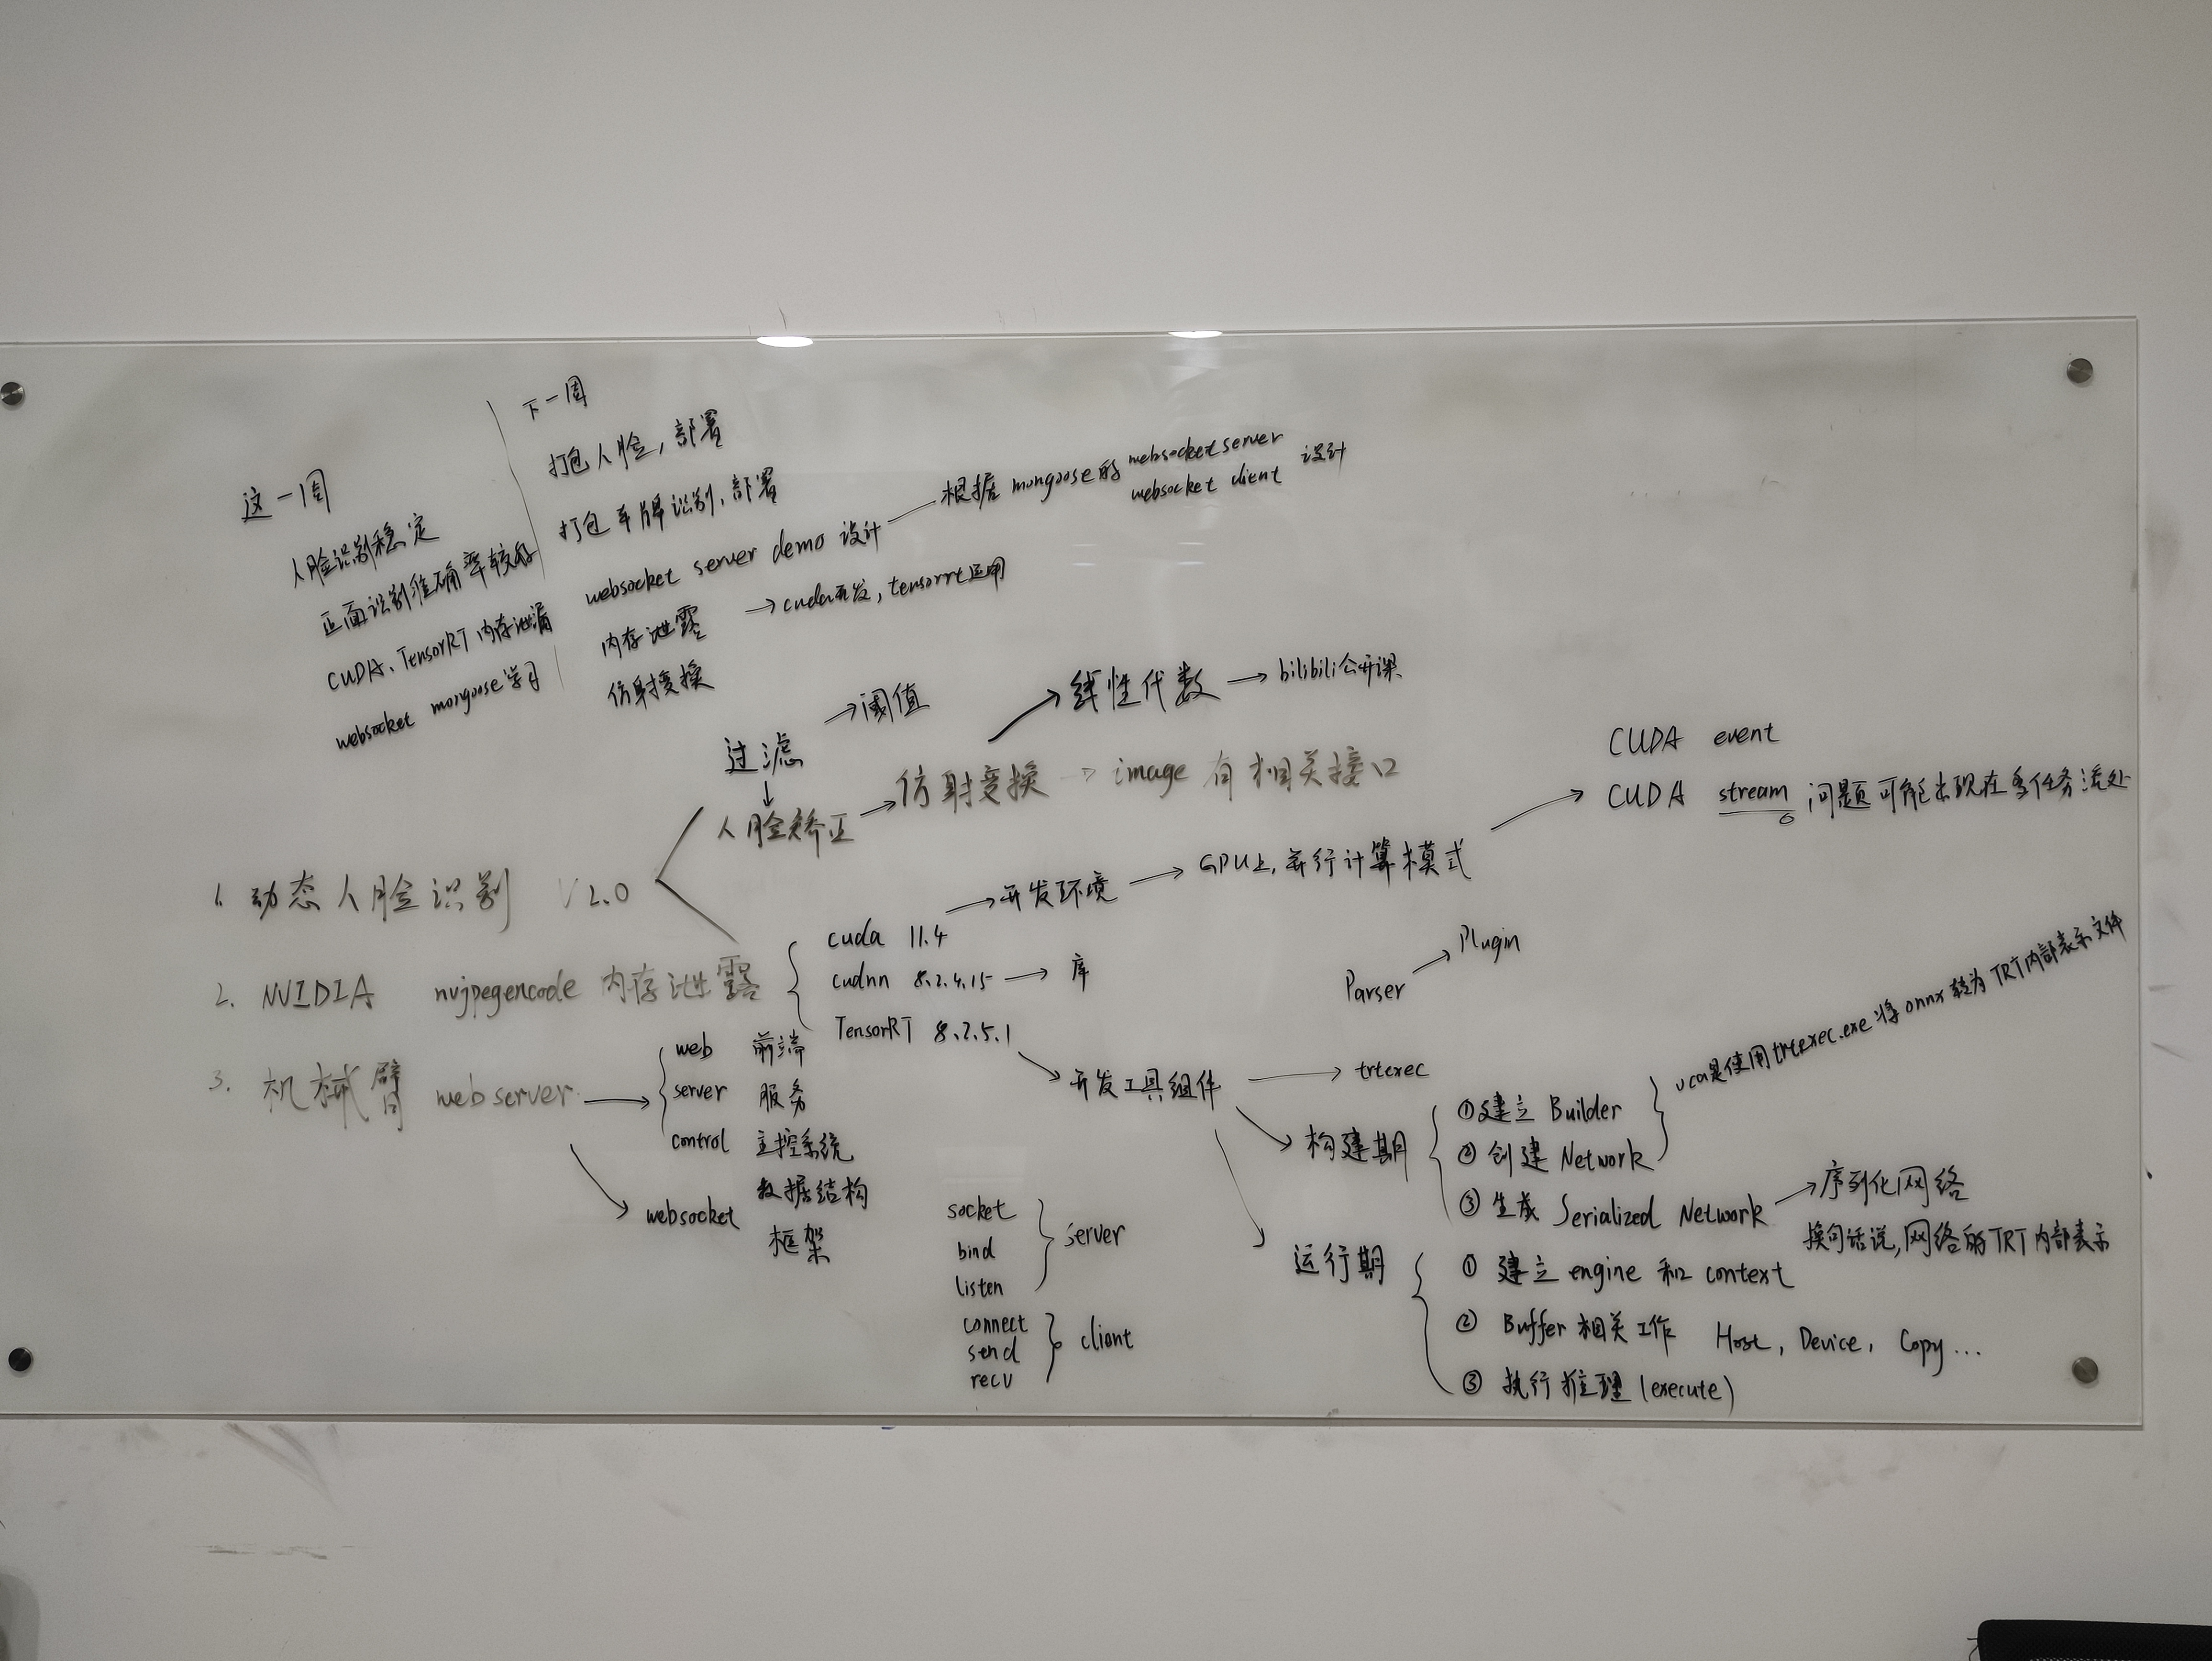 这一周
人脸识别稳定
正面识别准确率较好
CUDA、TensorRT 内存泄漏
websocket mongoose 学习
下一周
打包人脸, 部署
打包车牌识别, 部署
websocket server demo 设计
根据 mongoose 的 websocket server
websocket client 设计
内存泄露 → cuda开发, tensorrt运用
仿射变换
过滤 → 阈值
人脸矫正 → 仿射变换 → image 有相关接口
线性代数 → bilibili公开课
1. 动态人脸识别 V2.0
2. NVIDIA nvjpegencode 内存泄露
3. 机械臂 web server
cuda 11.4 → 开发环境 → GPU上, 并行计算模式
CUDA event
CUDA stream 问题可能出现在多任务流处
cudnn 8.2.4.15 → 库
TensorRT 8.2.5.1
web 前端
server 服务
control 主控系统
数据结构
websocket 框架
socket
bind
listen
server
connect
send
recv
client
Parser → Plugin
开发工具组件 → trtexec
构建期
①建立 Builder
②创建 Network
是使用trtexec.exe 将 onnx 转为 TRT内部表示文件
③生成 Serialized Network → 序列化网络
换句话说, 网络的TRT内部表示
运行期
① 建立 engine 和 context
② Buffer 相关工作 Host, Device, Copy...
③ 执行推理 (execute)